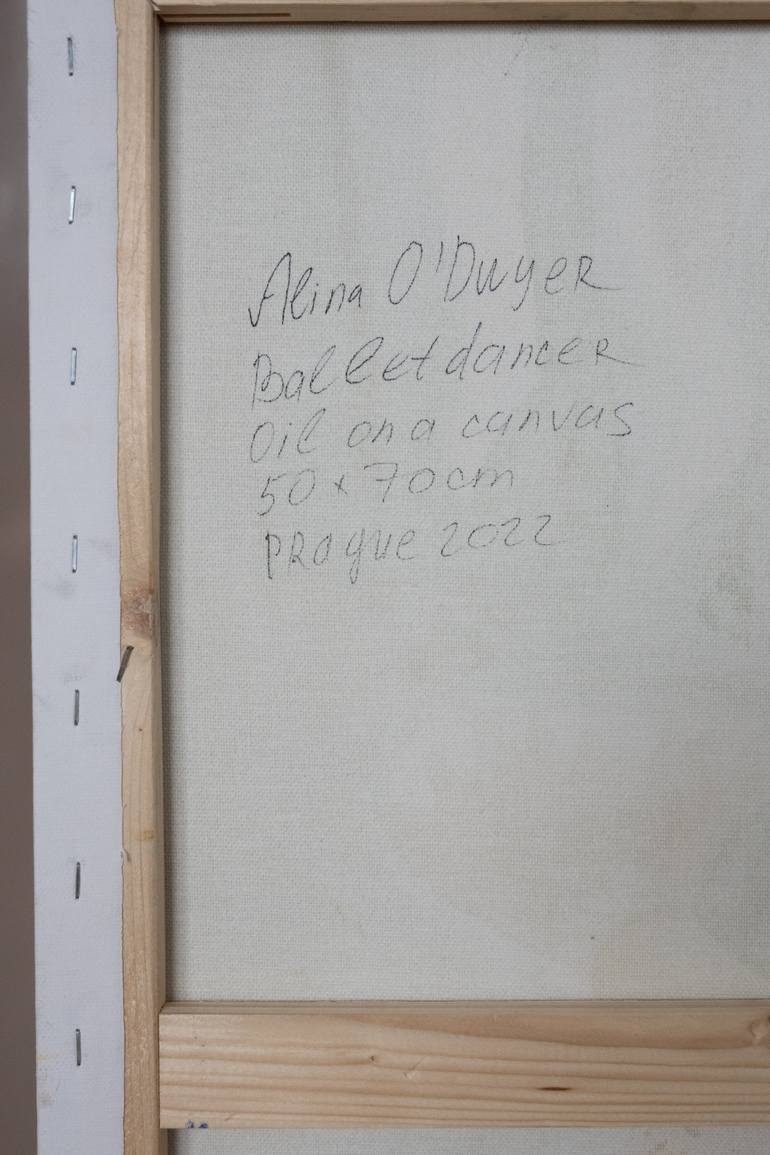 Alina O'Dwyer
Ballet dancer
Oil on a canvas
50 x 70 cm
Prague 2022